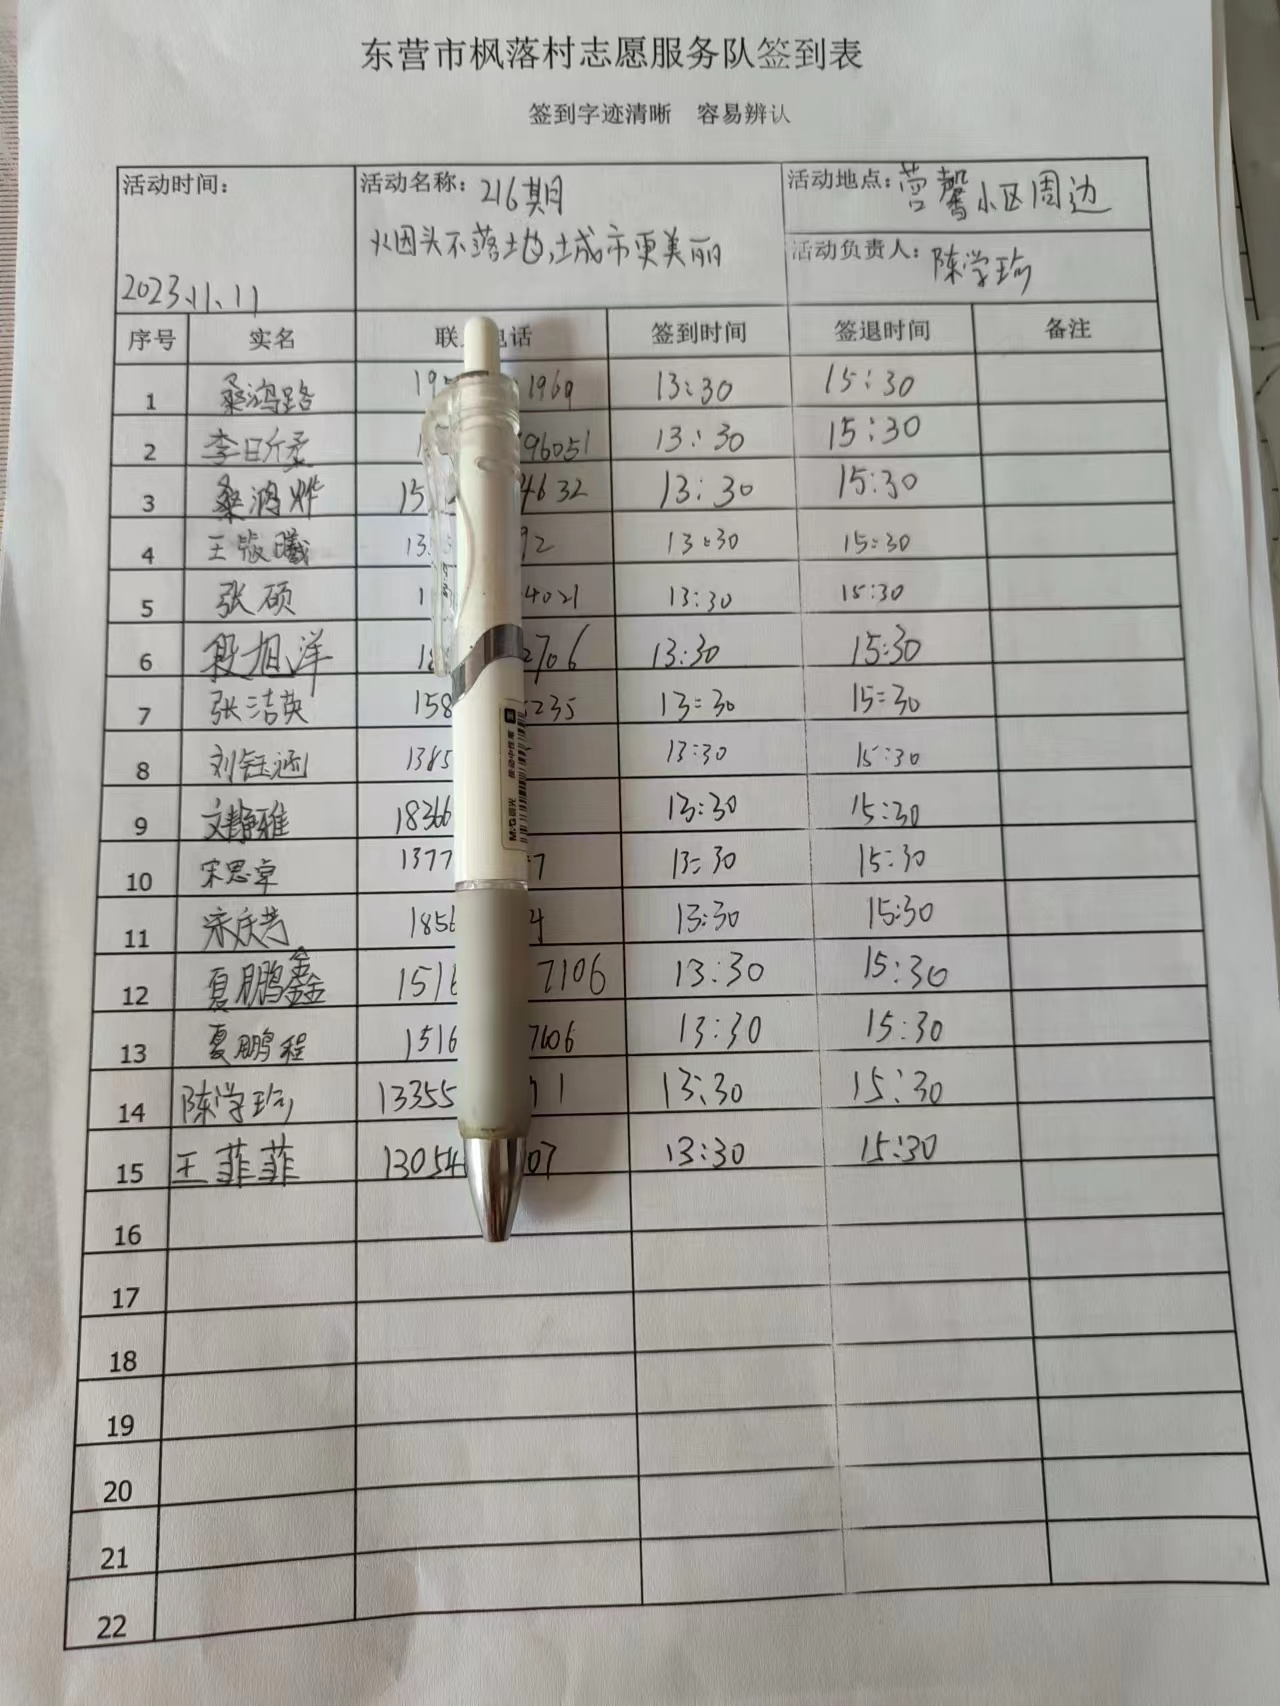 东营市枫落村志愿服务队签到表
签到字迹清晰 容易辨认
活动时间:
2023.11.11
活动名称: 216期
火因头不落土也,城市更美丽
活动地点: 营馨小区周边
活动负责人: 陈学瑜
序号 实名 联 电话 签到时间 签退时间 备注
1 桑鸿路 19 1969 13:30 15:30
2 李日斤柔 1 96051 13:30 15:30
3 桑鸿烨 15 4632 13:30 15:30
4 王 曦 13 92 13:30 15:30
5 张硕 1 4021 13:30 15:30
6 段旭洋 18 2706 13:30 15:30
7 张洁英 158 5235 13:30 15:30
8 刘钰涵 1385 13:30 15:30
9 文静雅 18366 13:30 15:30
10 宋思卓 1377 7 13:30 15:30
11 宋庆芳 1856 4 13:30 15:30
12 夏鹏鑫 1516 7106 13:30 15:30
13 夏鹏程 1516 7606 13:30 15:30
14 陈学瑜 13355 71 13:30 15:30
15 王菲菲 13054 07 13:30 15:30
16
17
18
19
20
21
22
M&G晨光